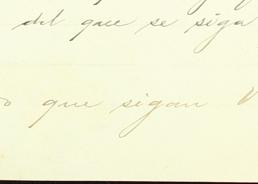 del que se siga
que sigan